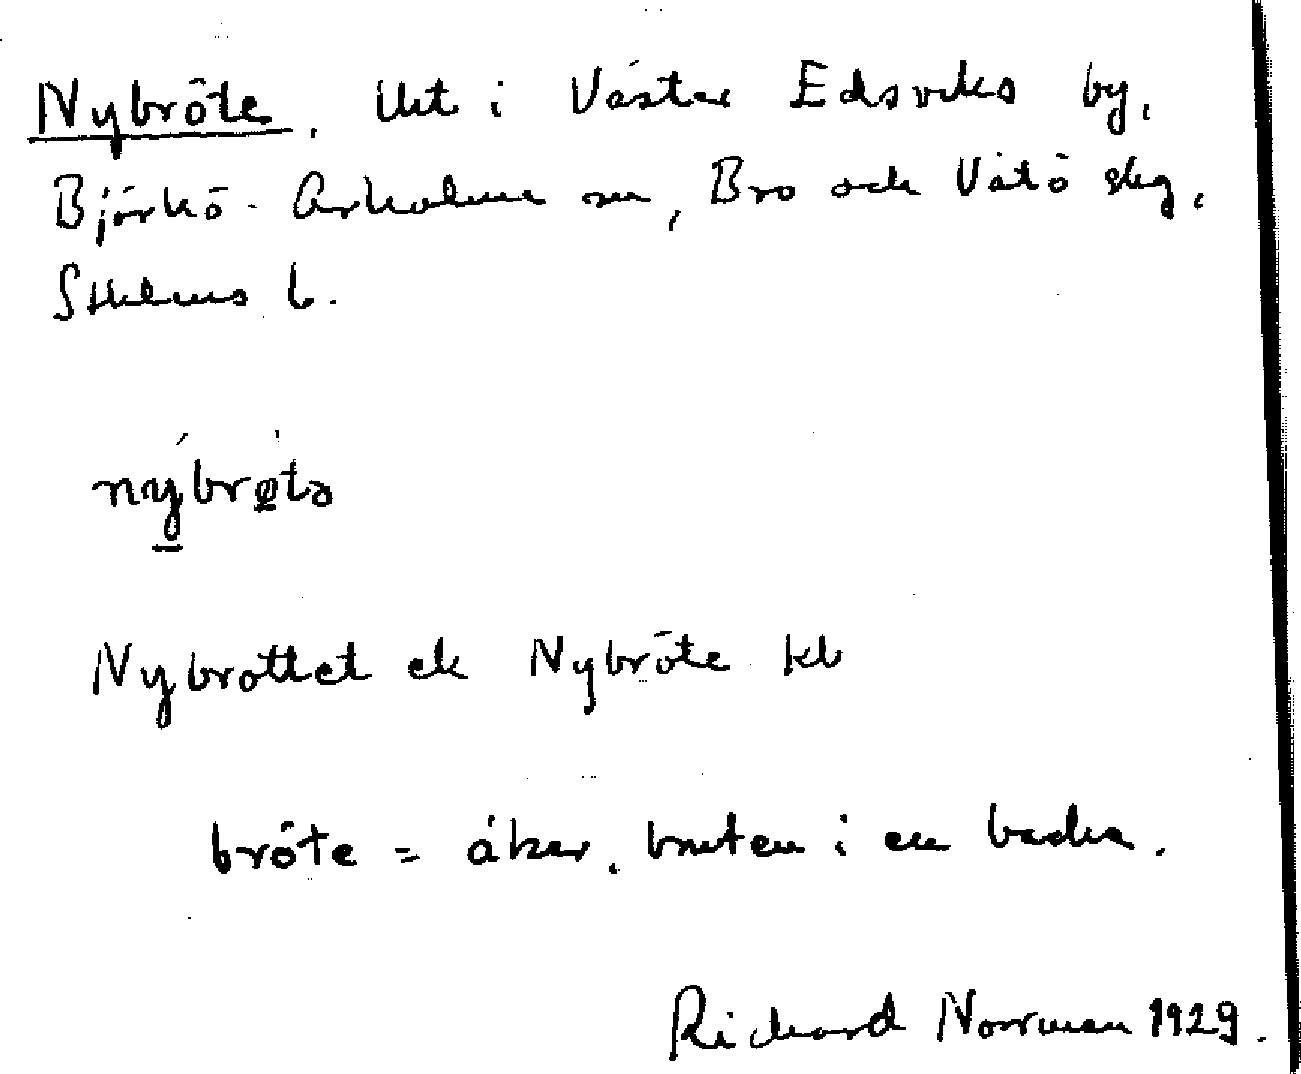 Nybröte. Urt i Väster Edsviks by,
Björkö-Arholma sn, Bro och Vätö skg,
Sthlms l.
nybrøtə
Nybrottet ek Nybröte kb
bröte = åker, bruten i en backe.
Richard Norrman 1929.